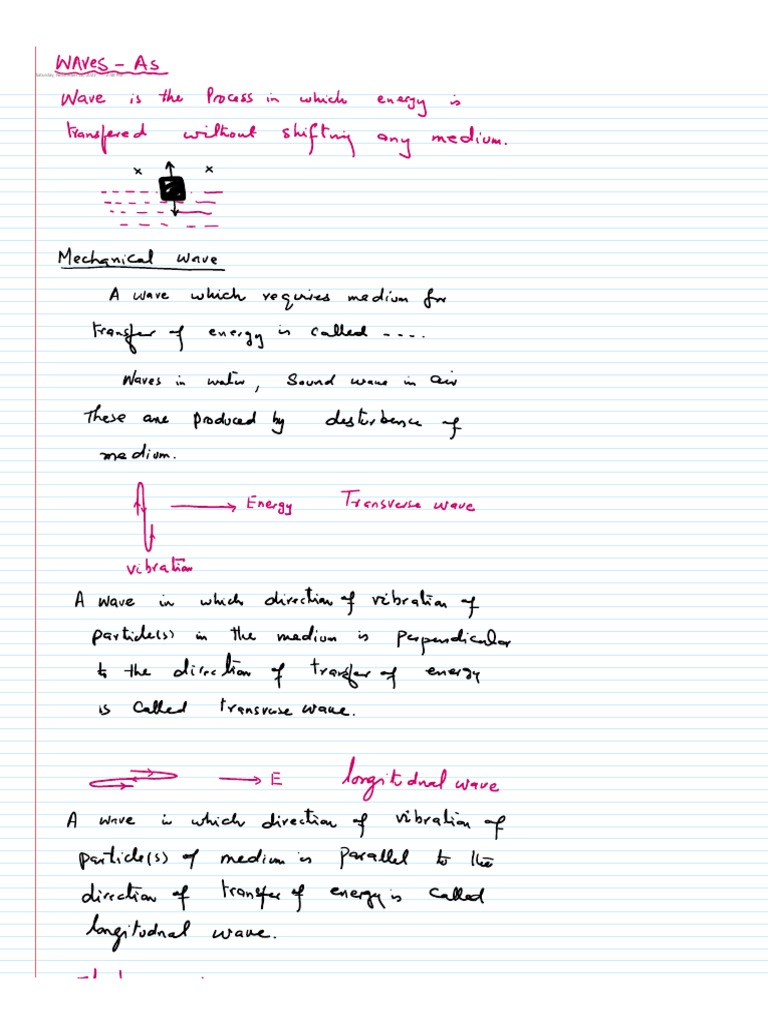 WAVES - As
Wave is the Process in which energy is
transfered without shifting any medium.
x x
Mechanical wave
A wave which requires medium for
transfer of energy is called ----.
Waves in water, Sound wave in air
These are produced by desturbence of
medium.
Energy Transverse wave
vibration
A wave in which direction of vibration of
particle(s) in the medium is perpendicular
to the direction of transfer of energy
is called transverse wave.
E longitudnal wave
A wave in which direction of vibration of
particle(s) of medium is parallel to the
direction of transfer of energy is called
longitudnal wave.